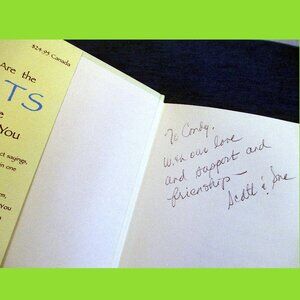 $24.95 Canada
Are the
TS
e
You
ct sayings,
in one
es,
You
To Cindy,
With our love
and support and
friendship —
Scott &